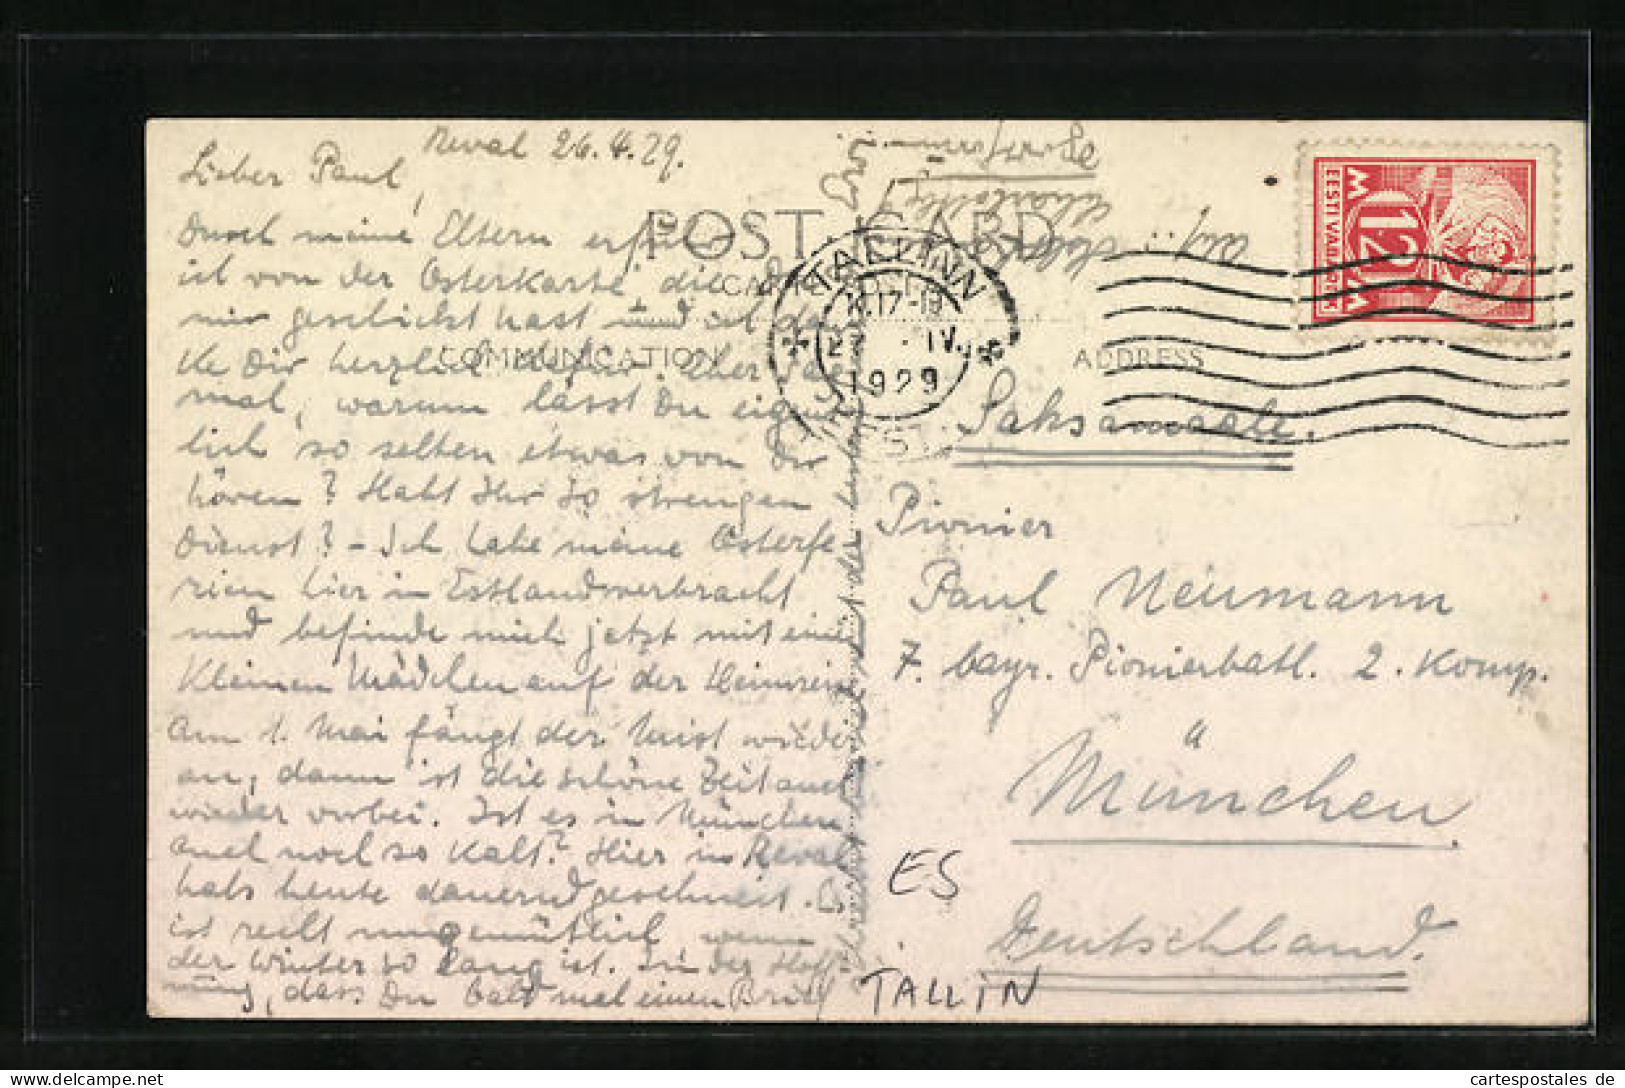 Reval 26.4.29.
Lieber Paul,
Durch meine Eltern erfuhr
ich von der Osterkarte die Du
mir geschickt hast und ich dan
ke Dir herzlich dafür. Aber sag
mal, warum lässt Du eigent
lich so selten etwas von Dir
hören? Habt Ihr so strengen
Dienst? – Ich habe meine Osterfe
rien hier in Estland verbracht
und befinde mich jetzt mit einem
kleinen Mädchen auf der Heimreise
Am 1. Mai fängt der Mist wieder
an, dann ist die schöne Zeit auch
wieder vorbei. Ist es in München
auch noch so kalt? Hier in Reval
hats heute dauernd geschneit. Es
ist recht ungemütlich, wenn
der Winter so lang ist. In der Hoff
nung, dass Du bald mal einen Brief
POST CARD
CARTE POSTALE
COMMUNICATION
ADDRESS
TALLINN
K.17-18
IV.
1929
EESTI VABARIIK
12 MARKA
Saksamaale.
Pionier
Paul Neumann
7. bayr. Pionierbatl. 2. Komp.
München
Deutschland.
ES
TALLIN
www.cartespostales.de